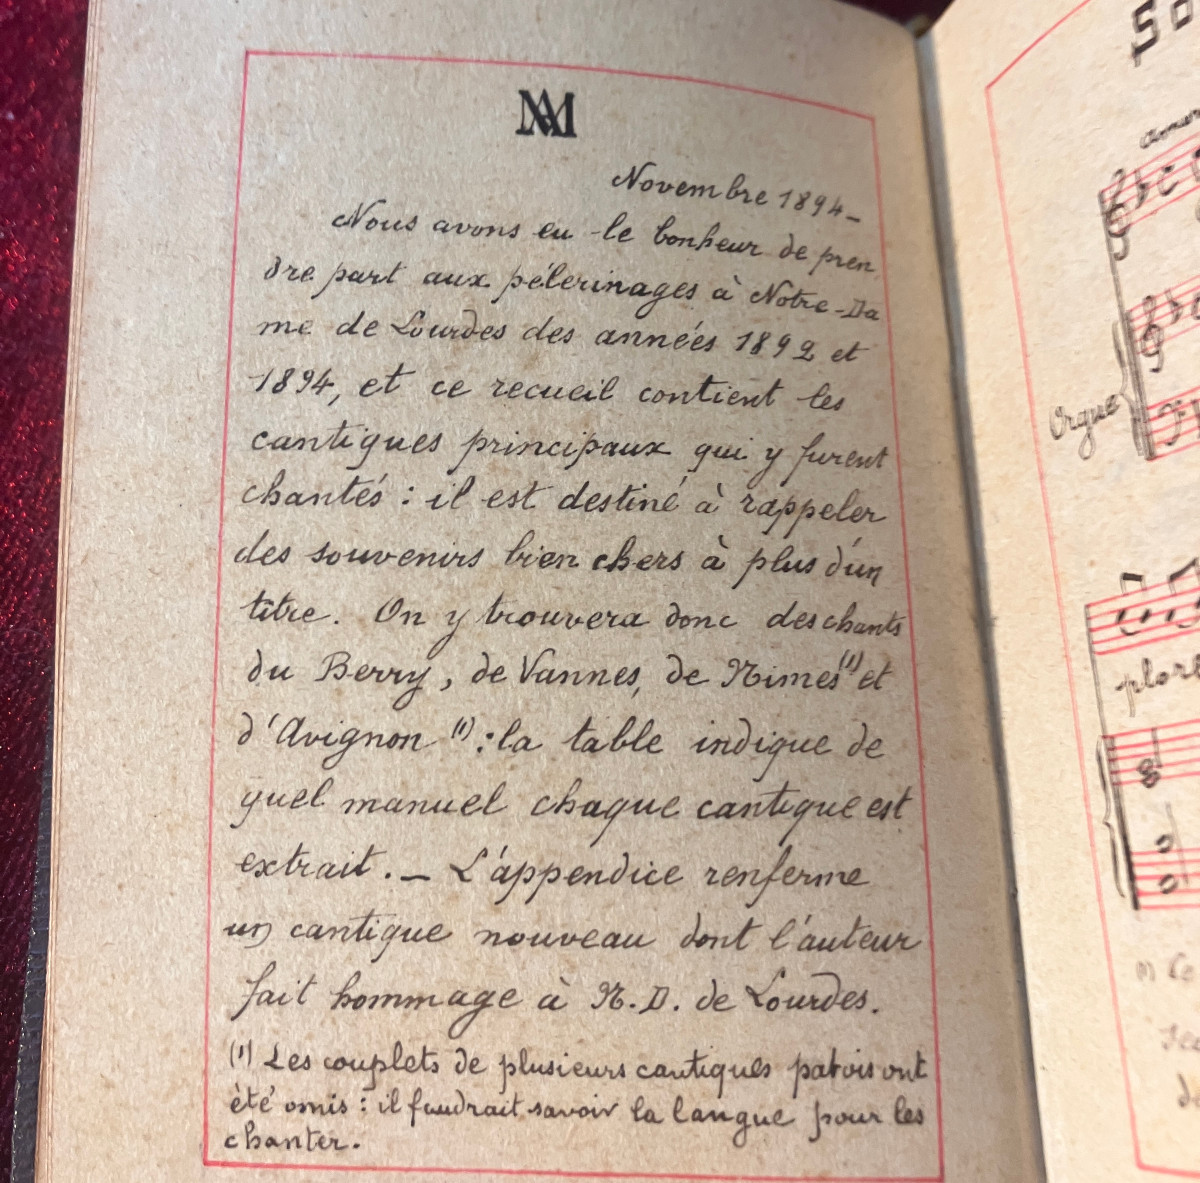 AM
Novembre 1894 –
Nous avons eu le bonheur de pren
dre part aux pélerinages à Notre-Da
me de Lourdes des années 1892 et
1894, et ce recueil contient les
cantiques principaux qui y furent
chantés : il est destiné à rappeler
des souvenirs bien chers à plus d'un
titre. On y trouvera donc des chants
du Berry, de Vannes, de Nimes (1) et
d'Avignon (1) : la table indique de
quel manuel chaque cantique est
extrait. – L'appendice renferme
un cantique nouveau dont l'auteur
fait hommage à N. D. de Lourdes.
(1) Les couplets de plusieurs cantiques patois ont
été omis : il faudrait savoir la langue pour les
chanter.
Orgue